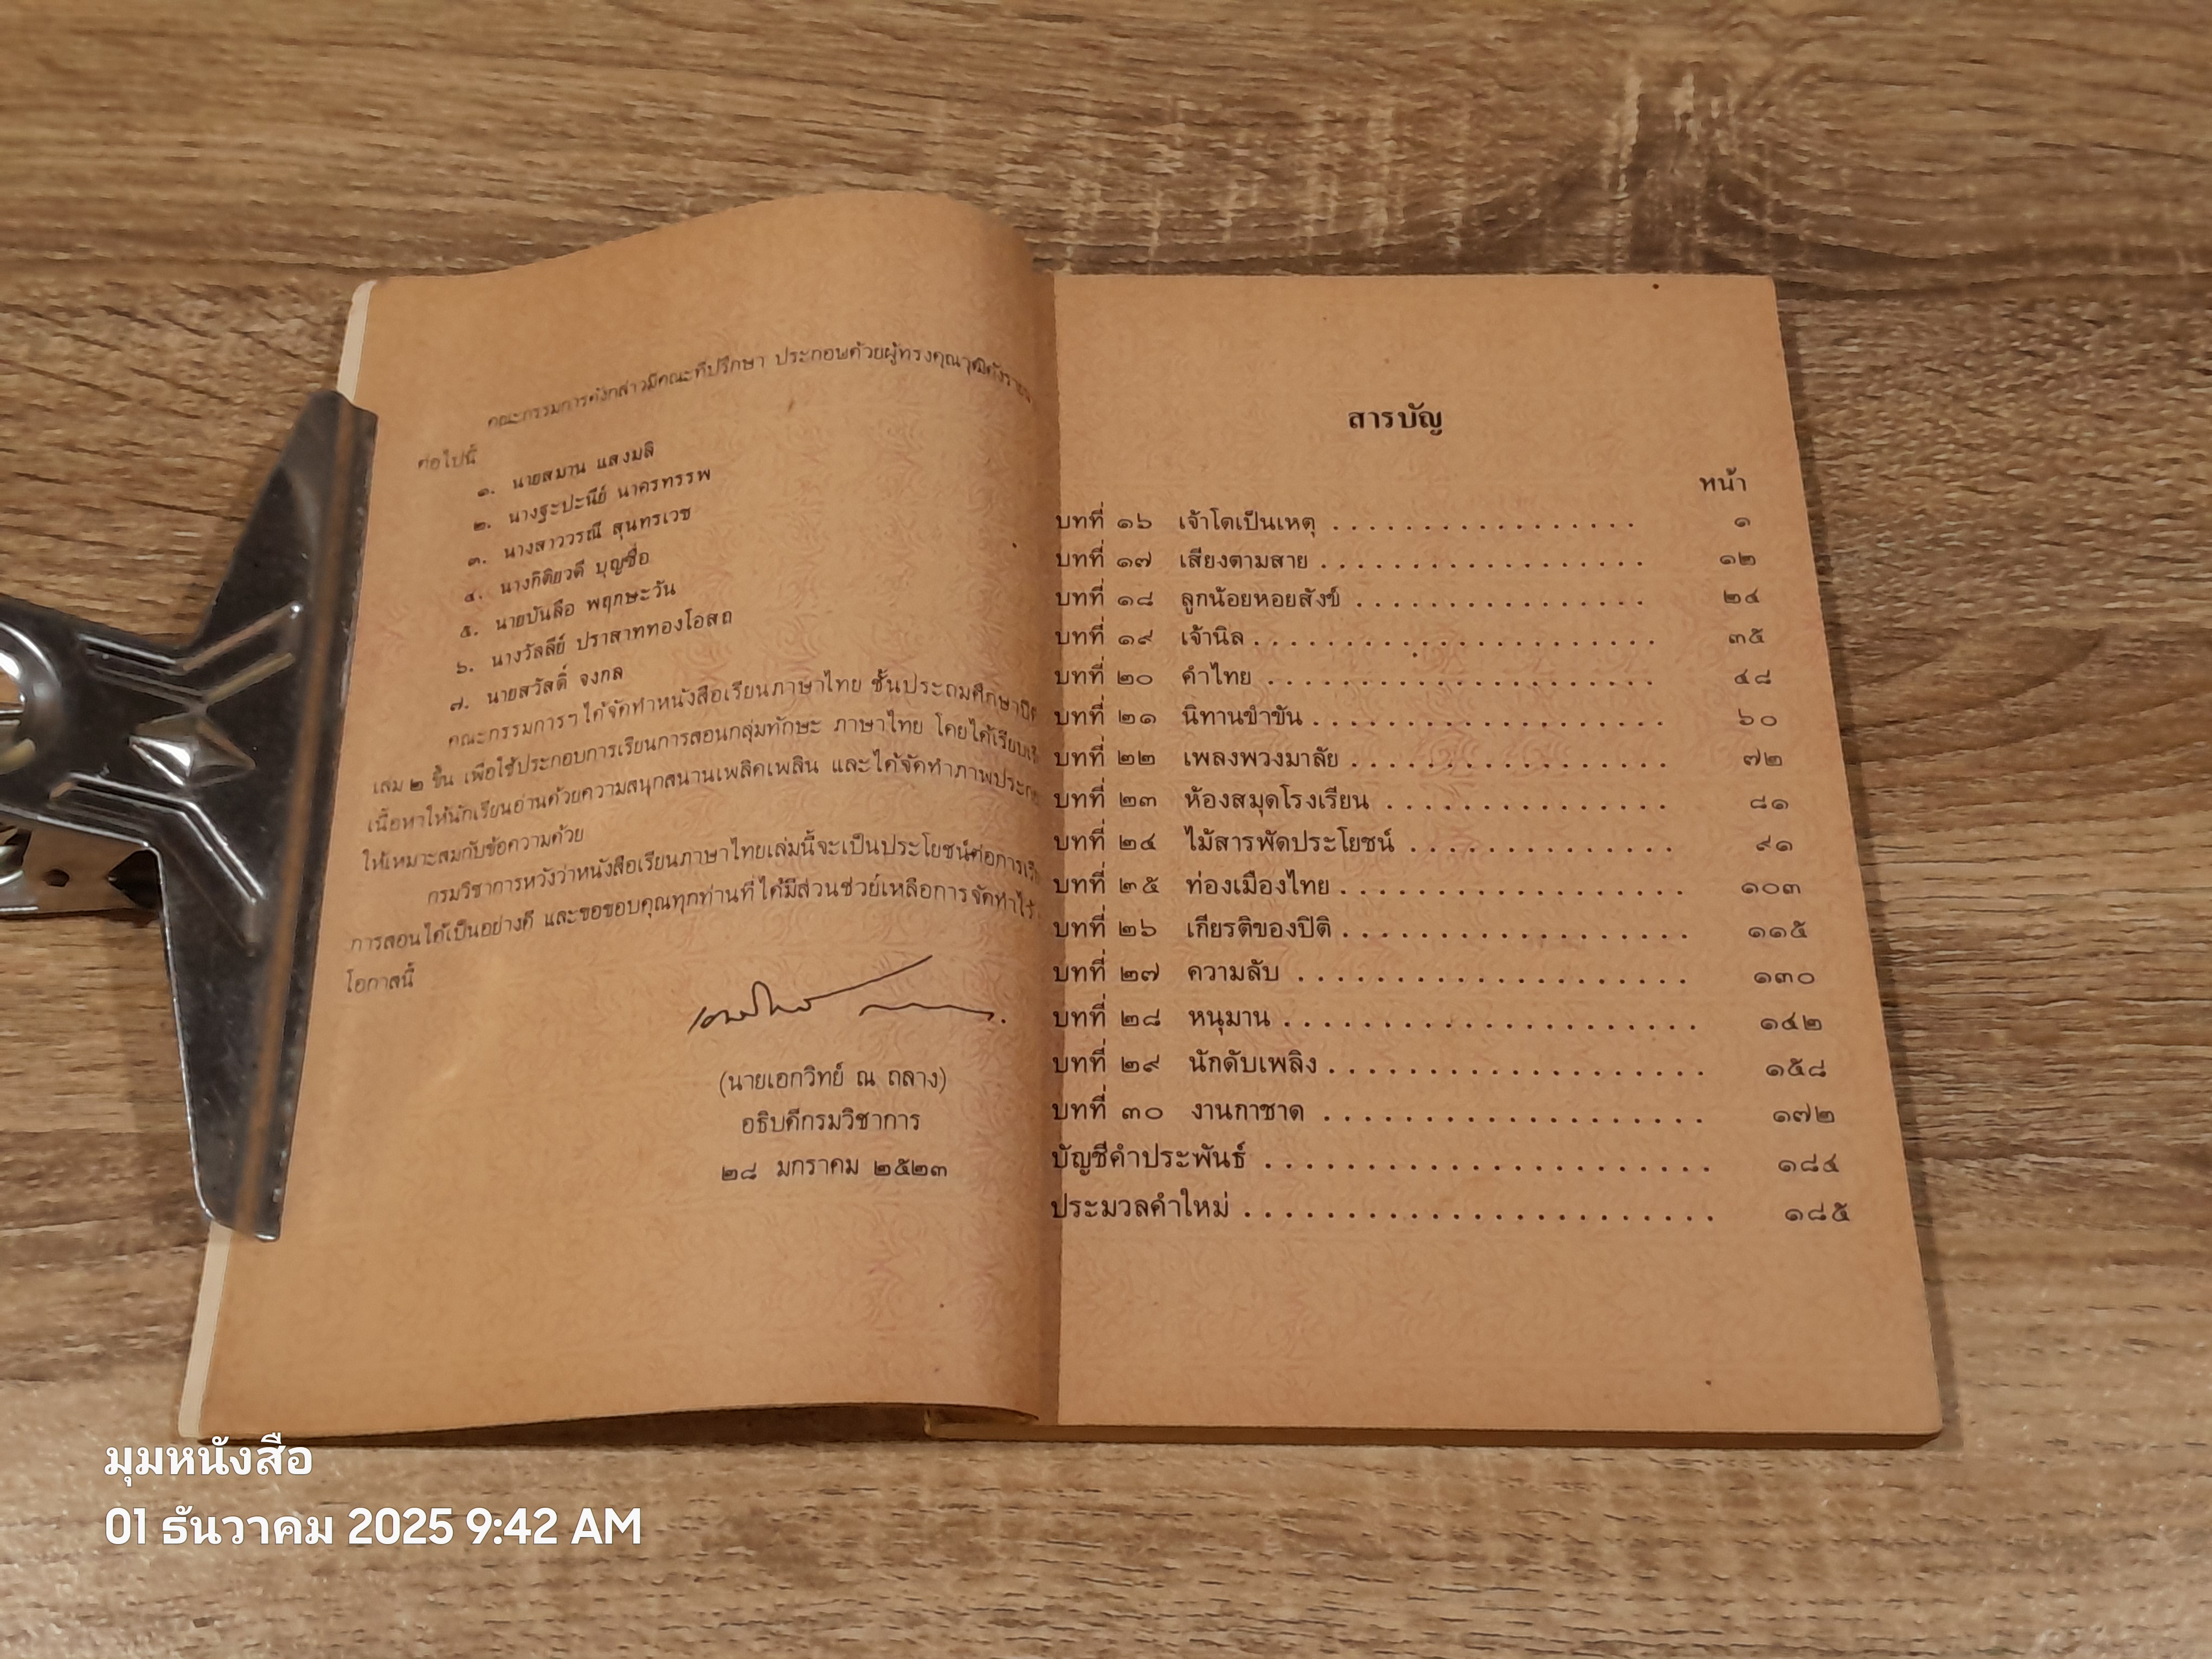 คณะกรรมการดังกล่าวมีคณะที่ปรึกษา ประกอบด้วยผู้ทรงคุณวุฒิดังราย
ต่อไปนี้
๑. นายสมาน แสงมลิ
๒. นางฐะปะนีย์ นาครทรรพ
๓. นางสาววรณี สุนทรเวช
๔. นางกิติยวดี บุญซื่อ
๕. นายบันลือ พฤกษะวัน
๖. นางวัลลีย์ ปราสาททองโอสถ
๗. นายสวัสดิ์ จงกล
คณะกรรมการฯ ได้จัดทำหนังสือเรียนภาษาไทย ชั้นประถมศึกษาปี
เล่ม ๒ ขึ้น เพื่อใช้ประกอบการเรียนการสอนกลุ่มทักษะ ภาษาไทย โดยได้เรียบ
เนื้อหาให้นักเรียนอ่านด้วยความสนุกสนานเพลิดเพลิน และได้จัดทำภาพประกอ
ให้เหมาะสมกับข้อความด้วย
กรมวิชาการหวังว่าหนังสือเรียนภาษาไทยเล่มนี้จะเป็นประโยชน์ต่อการเรี
การสอนได้เป็นอย่างดี และขอขอบคุณทุกท่านที่ได้มีส่วนช่วยเหลือการจัดทำไว้
โอกาสนี้
(นายเอกวิทย์ ณ ถลาง)
อธิบดีกรมวิชาการ
๒๘ มกราคม ๒๕๒๓
สารบัญ
หน้า
บทที่ ๑๖ เจ้าโตเป็นเหตุ . . . . . . . . . . . . . . . . . ๑
บทที่ ๑๗ เสียงตามสาย . . . . . . . . . . . . . . . . . . ๑๒
บทที่ ๑๘ ลูกน้อยหอยสังข์ . . . . . . . . . . . . . . . . ๒๔
บทที่ ๑๙ เจ้านิล . . . . . . . . . . . . . . . . . . . . . . ๓๕
บทที่ ๒๐ คำไทย . . . . . . . . . . . . . . . . . . . . . ๔๘
บทที่ ๒๑ นิทานขำขัน . . . . . . . . . . . . . . . . . . . ๖๐
บทที่ ๒๒ เพลงพวงมาลัย . . . . . . . . . . . . . . . . . ๗๒
บทที่ ๒๓ ห้องสมุดโรงเรียน . . . . . . . . . . . . . . . ๘๑
บทที่ ๒๔ ไม้สารพัดประโยชน์ . . . . . . . . . . . . . . ๙๑
บทที่ ๒๕ ท่องเมืองไทย . . . . . . . . . . . . . . . . . . ๑๐๓
บทที่ ๒๖ เกียรติของปิติ . . . . . . . . . . . . . . . . . . ๑๑๕
บทที่ ๒๗ ความลับ . . . . . . . . . . . . . . . . . . . . ๑๓๐
บทที่ ๒๘ หนุมาน . . . . . . . . . . . . . . . . . . . . . ๑๔๒
บทที่ ๒๙ นักดับเพลิง . . . . . . . . . . . . . . . . . . . ๑๕๘
บทที่ ๓๐ งานกาชาด . . . . . . . . . . . . . . . . . . . ๑๗๒
บัญชีคำประพันธ์ . . . . . . . . . . . . . . . . . . . . . . ๑๘๔
ประมวลคำใหม่ . . . . . . . . . . . . . . . . . . . . . . . ๑๘๕
มุมหนังสือ
01 ธันวาคม 2025 9:42 AM